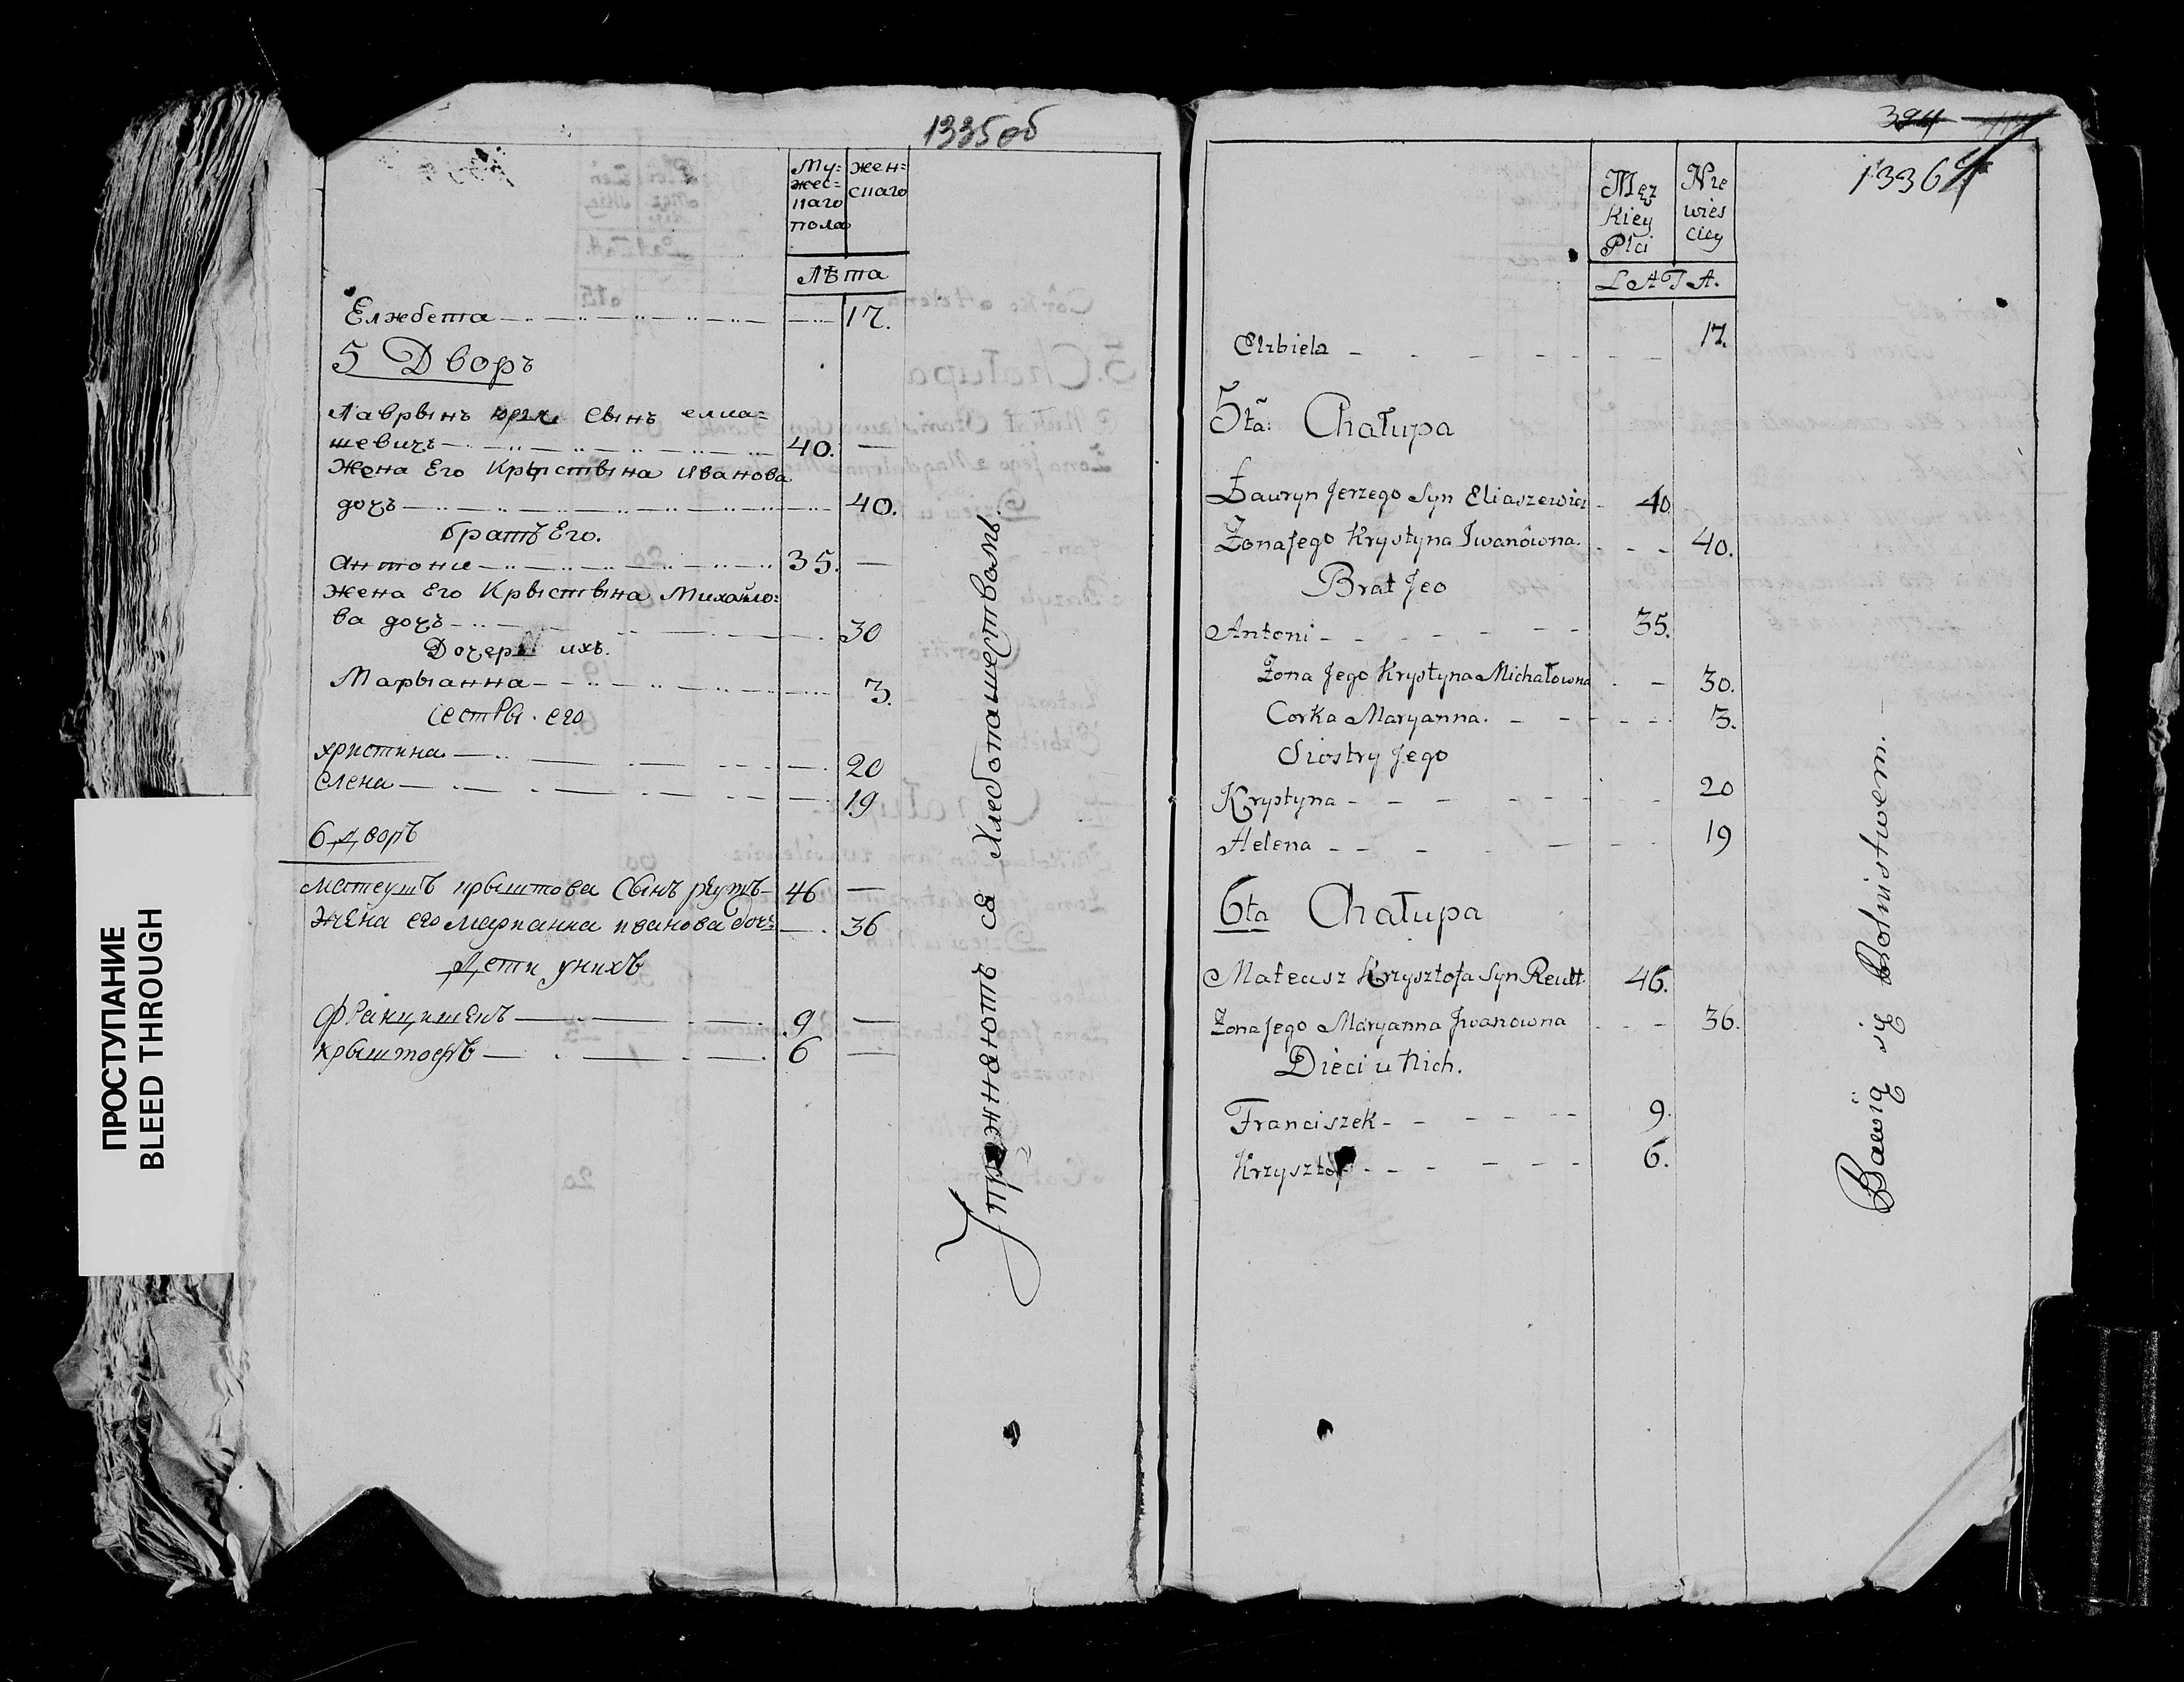 1335 об
Му= жен=
жес= скаго
каго
пола
Лѣта
Елжбета 17.
5 Дворъ
Лаврынъ юрья сынъ елиа=
шевичъ 40. —
Жена Его Крыстына Иванова
дочъ 40.
братъ Его.
Антони 35. —
жена Его Крыстына Михайло=
ва дочъ 30
Дочерь ихъ.
Марыанна 3.
сестры его
христина 20
елена 19
6 дворъ
матеушъ крыштова сынъ реутъ 46 —
жена его марианна иванова доч: 36
Дети унихъ
Францишекъ 9 —
крыштофъ 6 —
Упражняютъ ся Хлебопашествомъ.
ПРОСТУПАНИЕ
BLEED THROUGH
394
1336
Męz Nie
Kiey wies
Płci ciey
LATA.
Elzbieta 17.
5ta: Chałupa
Łauryn Jerzego Syn Eliaszewicz 40.
Zona Jego Krystyna Iwanówna. 40.
Brat Jeo
Antoni 35.
Zona Jego Krystyna Michałowna 30.
Corka Maryanna. 3.
Siostry Jego
Krystyna 20
Helena 19
6ta Chałupa
Mateusz Krzysztofa Syn Reutt. 46.
Zona Jego Maryanna Jwanowna 36.
Dieci u Nich.
Franciszek 9.
Krzysztof 6.
Bawią się Rolnistwem.